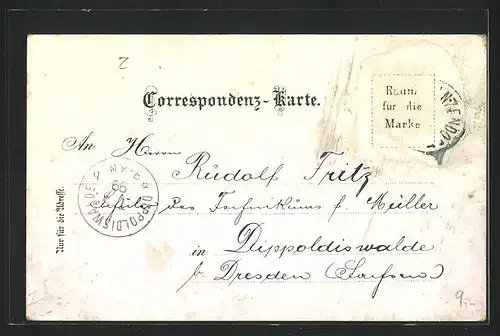 2
Correspondenz-Karte.
Raum
für die
Marke
NZENDO
An Herrn
Rudolf Fritz
Schüler des Technikums f. Müller
in Dippoldiswalde
b. Dresden (Sachsen)
Nur für die Adresse.
DIPPOLDISWALDE
99
9,-